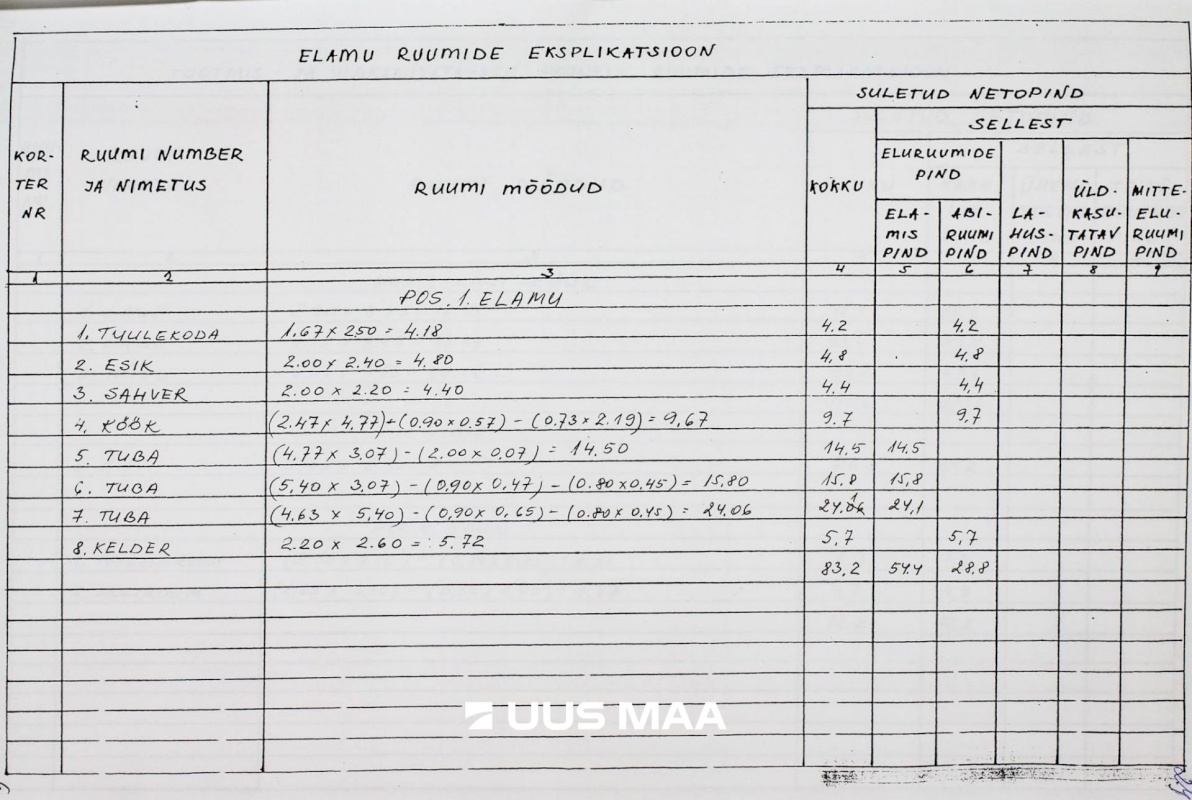 ELAMU RUUMIDE EKSPLIKATSIOON
KOR-
TER
NR
RUUMI NUMBER
JA NIMETUS
RUUMI MÕÕDUD
SULETUD NETOPIND
KOKKU
SELLEST
ELURUUMIDE
PIND
ELA-
MIS
PIND
ABI-
RUUMI
PIND
LA-
HUS-
PIND
ÜLD-
KASU-
TATAV
PIND
MITTE-
ELU-
RUUMI
PIND
1 2 3 4 5 6 7 8 9
POS. 1. ELAMU
1. TUULEKODA 1.67 x 2.50 = 4.18 4.2 4.2
2. ESIK 2.00 x 2.40 = 4.80 4,8 4.8
3. SAHVER 2.00 x 2.20 = 4.40 4.4 4,4
4. KÖÖK (2.47 x 4,77)+(0,90x0.57) - (0.73x2.19) = 9,67 9.7 9,7
5. TUBA (4,77 x 3,07) - (2.00 x 0,07) = 14.50 14,5 14.5
6. TUBA (5,40 x 3.07) - (0,90 x 0,47) - (0.80x0,45) = 15,80 15,8 15,8
7. TUBA (4,63 x 5,40) - (0,90x 0,65) - (0.80x 0,45) = 24.06 24.1 24,1
8. KELDER 2.20 x 2.60 = 5.72 5,7 5,7
83,2 54.4 28.8
UUS MAA